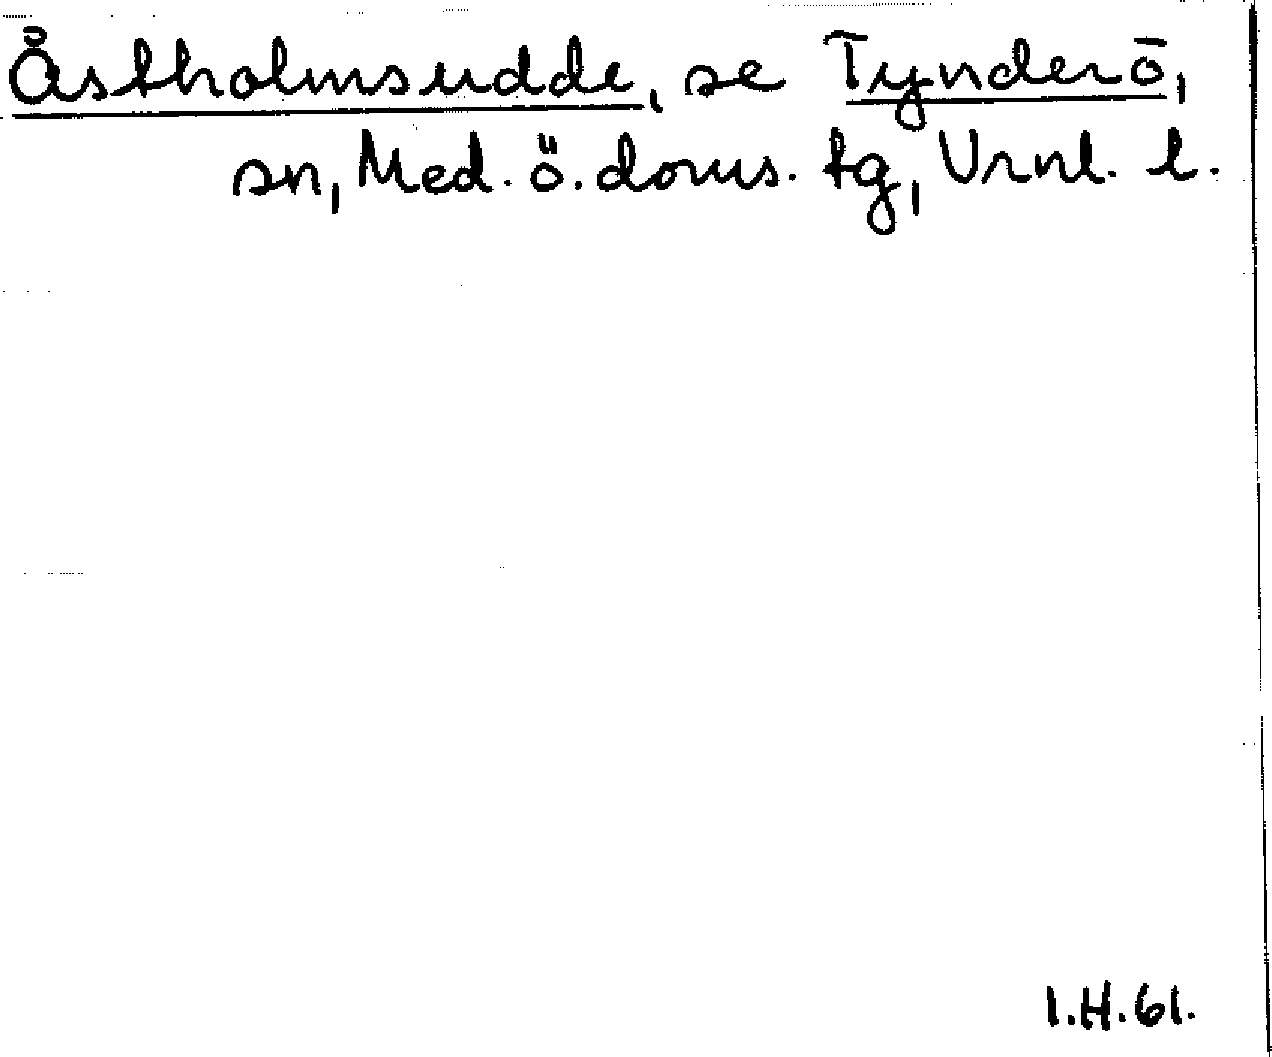 Åstholmsudde, se Tynderö,
sn, Med. ö. doms. tg, Vrnl. l.
I.H.61.